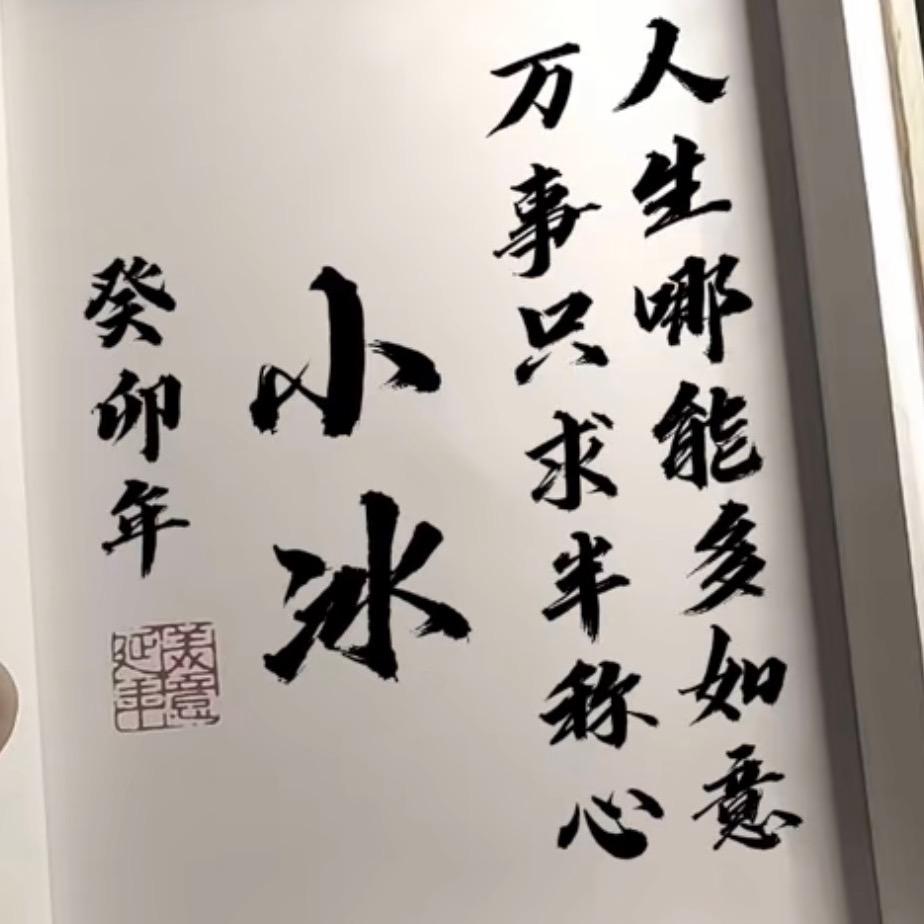 人生哪能多如意
万事只求半称心
小冰
癸卯年
美意
延年